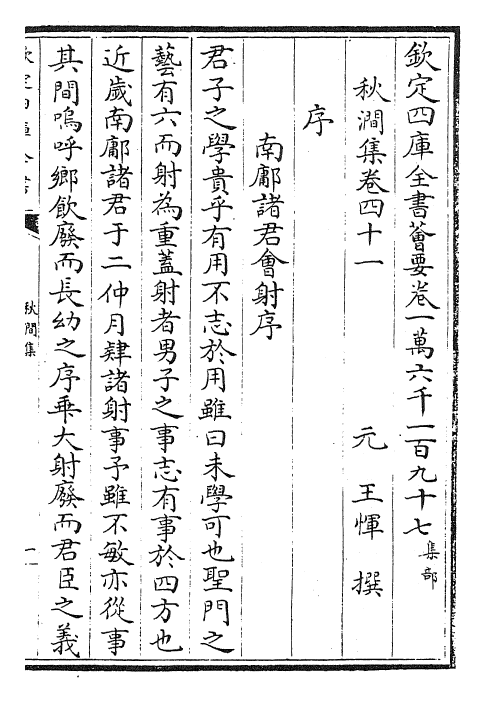 欽定四庫全書薈要卷一萬六千一百九十七集部
秋澗集卷四十一 元 王惲 撰
序
南鄘諸君會射序
君子之學貴乎有用不志於用雖曰未學可也聖門之
藝有六而射為重蓋射者男子之事志有事於四方也
近歲南鄘諸君于二仲月肄諸射事予雖不敏亦從事
其間嗚呼鄉飲廢而長幼之序乖大射廢而君臣之義
秋澗集
一